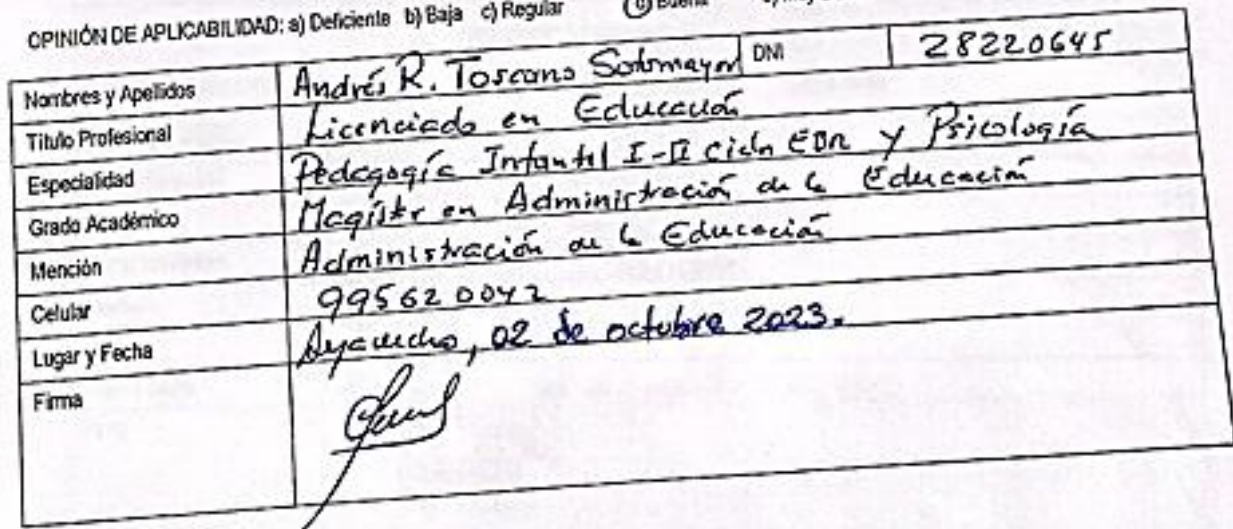 OPINIÓN DE APLICABILIDAD: a) Deficiente b) Baja c) Regular d) Buena
Nombres y Apellidos Andrés R. Toscano Sotomayor DNI 28220645
Título Profesional Licenciado en Educación
Especialidad Pedagogía Infantil I-II Ciclo EBR y Psicología
Grado Académico Magíster en Administración de la Educación
Mención Administración de la Educación
Celular 995620042
Lugar y Fecha Ayacucho, 02 de octubre 2023.
Firma